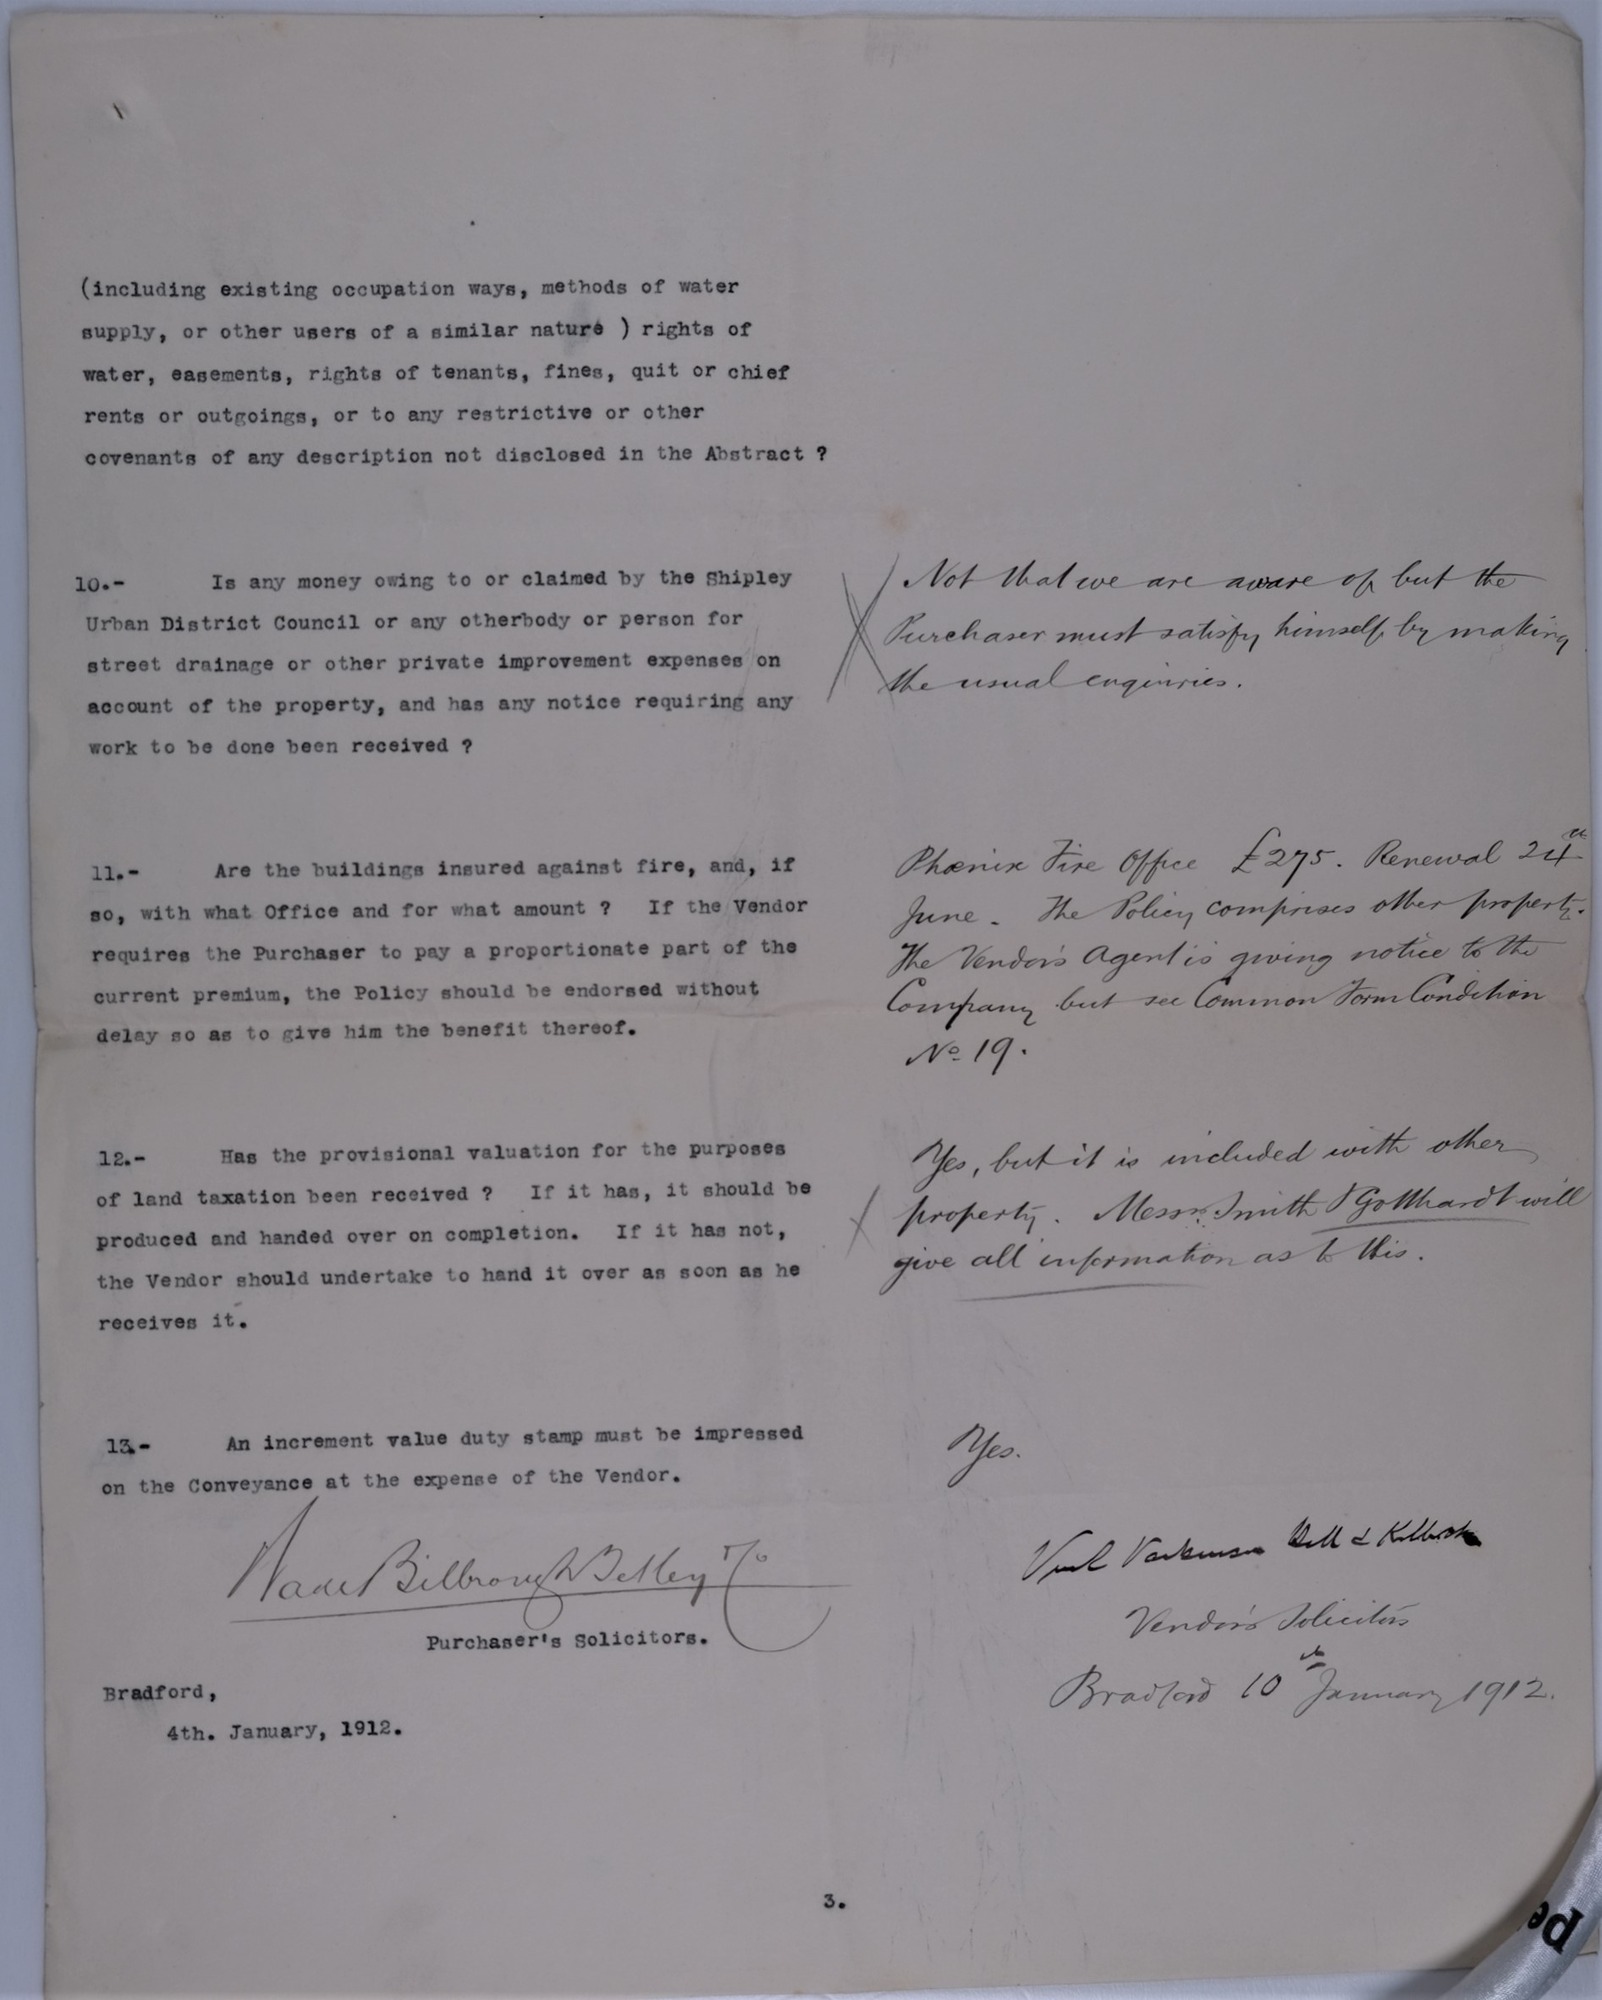 (including existing occupation ways, methods of water
supply, or other users of a similar nature ) rights of
water, easements, rights of tenants, fines, quit or chief
rents or outgoings, or to any restrictive or other
covenants of any description not disclosed in the Abstract ?
10.- Is any money owing to or claimed by the Shipley
Urban District Council or any otherbody or person for
street drainage or other private improvement expenses on
account of the property, and has any notice requiring any
work to be done been received ?
Not that we are aware of but the
Purchaser must satisfy himself by making
the usual enquiries.
11.- Are the buildings insured against fire, and, if
so, with what Office and for what amount ? If the Vendor
requires the Purchaser to pay a proportionate part of the
current premium, the Policy should be endorsed without
delay so as to give him the benefit thereof.
Phœnix Fire Office £275. Renewal 24th
June. The Policy comprises other property.
The Vendor's Agent is giving notice to the
Company but see Common Form Condition
No 19.
12.- Has the provisional valuation for the purposes
of land taxation been received ? If it has, it should be
produced and handed over on completion. If it has not,
the Vendor should undertake to hand it over as soon as he
receives it.
Yes, but it is included with other
property. Messrs. Smith & Gotthardt will
give all information as to this.
13.- An increment value duty stamp must be impressed
on the Conveyance at the expense of the Vendor.
Yes.
Wade Bilbrough Tetley & Co
Purchaser's Solicitors.
Bradford,
4th. January, 1912.
Vendor's Solicitors
Bradford 10th January 1912.
3.